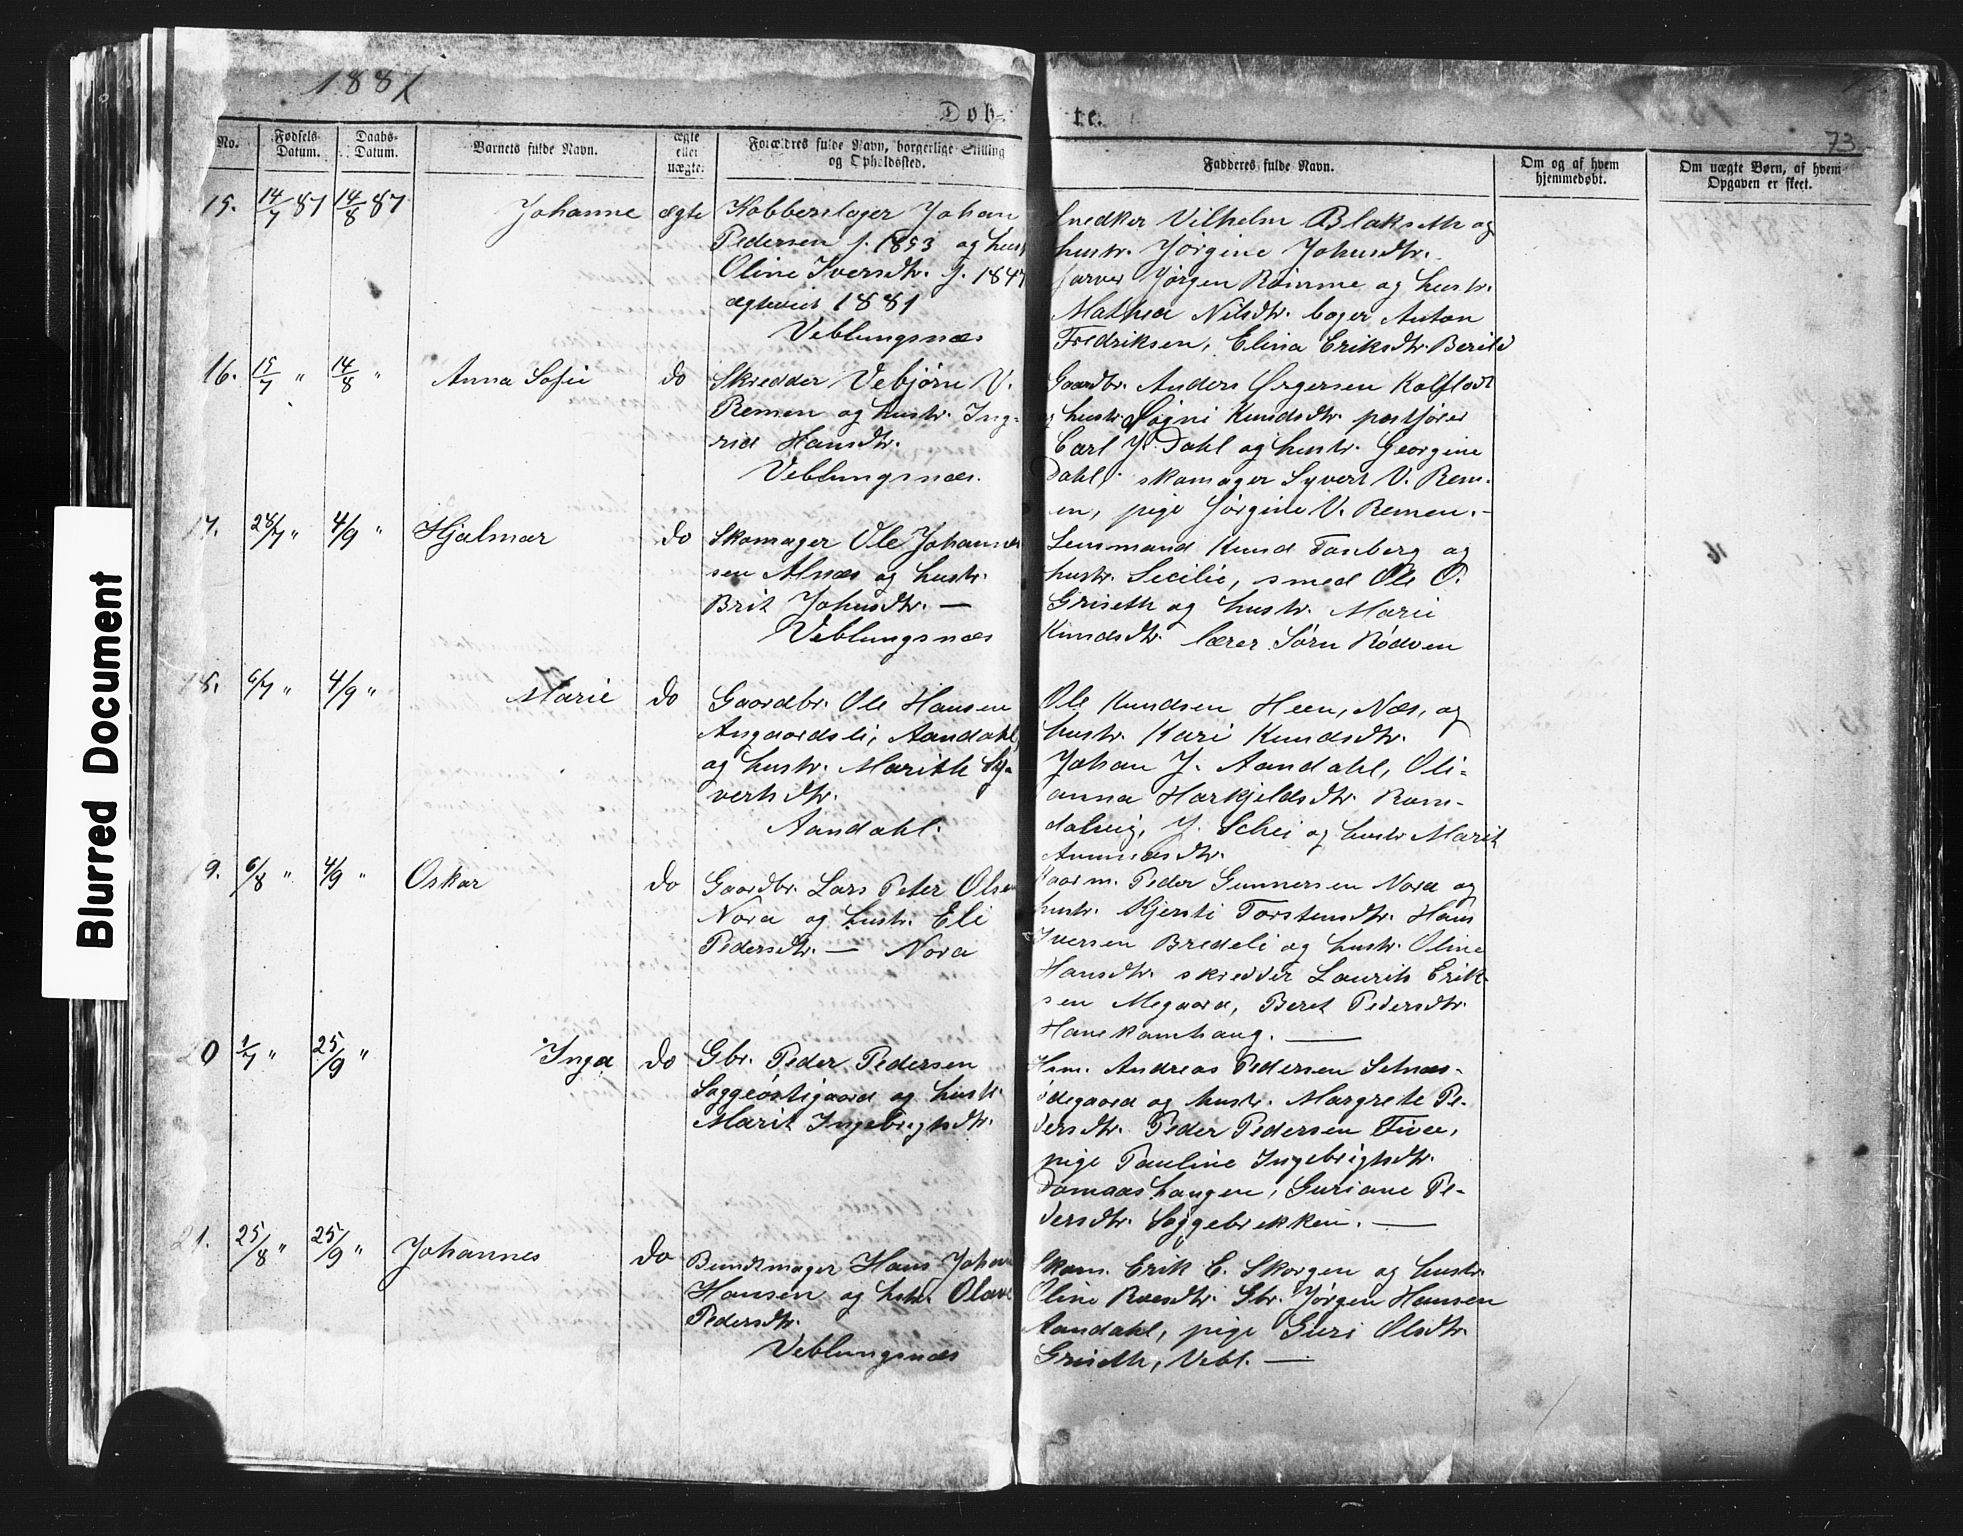 1887
Døb-
te.
73
No.
Fødsels-
Datum.
Daabs-
Datum.
Barnets fulde Navn.
ægte
eller
uægte.
Forældres fulde Navn, borgerlige Stilling
og Opholdssted.
Fadderes fulde Navn.
Om og af hvem
hjemmedøbt.
Om uægte Børn, af hvem
Opgaven er skeet.
15. 14/7 87 14/8 87 Johanne ægte
Kobberslager Johan
Pedersen f. 1853 og hust
Oline Iversdtr. f. 1847
ægteviet 1881
Veblungsnæs
Snedker Vilhelm Blakseth og
hustr. Jørgine Johnsdtr.
farver Jørgen Rømme og hustr.
Mathea Nilsdtr. bager Anton
Fredriksen, Elina Eriksdtr.
16. 15/7 " 14/8 " Anna Sofie do
Skredder Vebjørn V.
Remen og hustr. Ing-
rid Hansdtr.
Veblungsnæs.
Gaardbr. Anders Ørgersen Kolflodt
og hustr. Signi Knudsdtr. postfører
Carl J. Dahl og hustr. Georgine
Dahl, skomager Syvert V. Rem-
en, pige Jørgine V. Remen. -
17. 28/7 " 4/9 " Hjalmar do
Skomager Ole Johannes
sen Alnæs og hustr.
Brit Johnsdtr. —
Veblungsnæs
Lensmand Knud Tosberg og
hustr. Secilie, smed Ole O.
Griseth og hustr. Marie
Knudsdtr. lærer Sørn Rødven
16
18. 6/7 " 4/9 " Marie do
Gaardbr. Ole Hansen
Ansgaardsli, Aandahl
og hustr. Marith Sy-
vertsdtr.
Aandahl.
Ole Knudsen Heen, Næs, og
hustr. Kari Knudsdtr.
Johan J. Aandahl, Oli-
anna Harkjeldsdtr. Rom-
dalseig, J. Schei og hustr Marit
19. 6/8 " 4/9 " Oskar do
Gaardbr. Lars Peter Olsen
Nora og hustr. Eli
Pedersdtr. — Nora
Kaarm. Peder Gunnersen Nora og
hustr. Kjersti Torstensdtr. Hans
Iversen Bredeli og hustr. Oline
Hansdtr. skredder Laurits Erik-
sen Megaard, Beret Pedersdtr.
Hanekamhaug. —
20 1/7 " 25/9 " Inga do
Gbr. Peder Pedersen
Soggeøstigaard og hustr.
Marit Ingebrigtsdtr.
Hsm. Andreas Pedersen Setnæs-
ødegaard og hustr. Margrete Pe-
dersdtr. Peder Pedersen Fiva,
pige Pauline Ingebrigtsdtr.
Damaashaugen, Guriane Pe-
dersdtr. Soggebrekken. —
21. 25/8 " 25/9 " Johannes do
Bundtmager Hans Johan
Hansen og hstr. Olave
Pedersdtr.
Veblungsnæs
Skom. Erik E. Skorgen og hustr.
Oline Roesdtr. Gbr. Jørgen Hansen
Aandahl, pige Guri Olsdtr.
Griseth, Vebl. —
Blurred Document